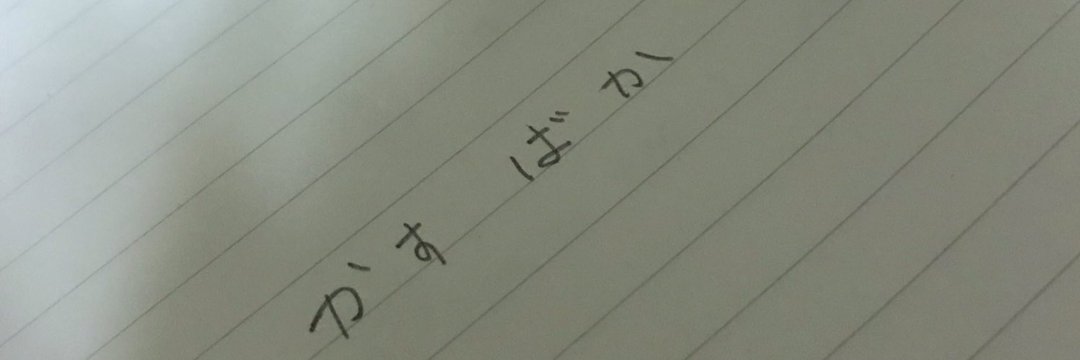 かすばか